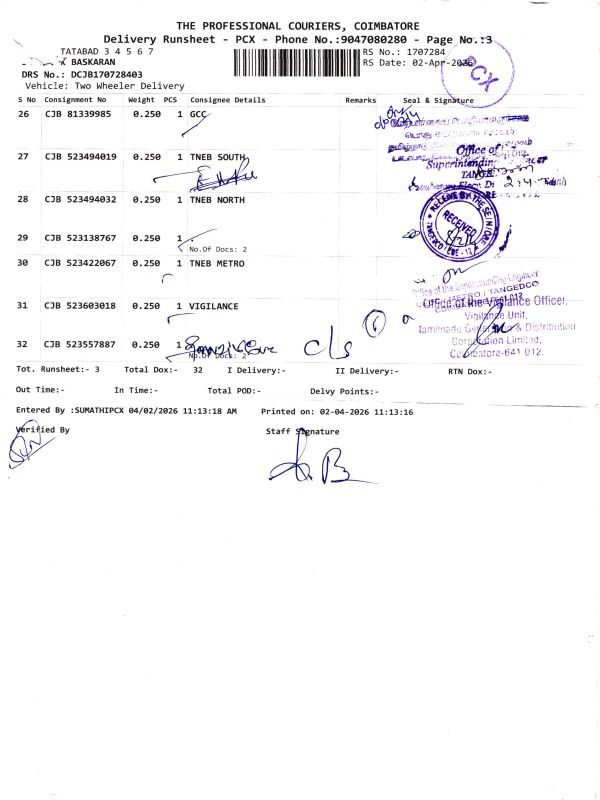 THE PROFESSIONAL COURIERS, COIMBATORE
Delivery Runsheet - PCX - Phone No.:9047080280 - Page No.:3
TATABAD 3 4 5 6 7
BASKARAN
DRS No.: DCJB170728403
Vehicle: Two Wheeler Delivery
RS No.: 1707284
RS Date: 02-Apr-2026
PCX
S No Consignment No Weight PCS Consignee Details Remarks Seal & Signature
26 CJB 81339985 0.250 1 GCC
27 CJB 523494019 0.250 1 TNEB SOUTH
Office of
Superintending
28 CJB 523494032 0.250 1 TNEB NORTH
RECEIVED
29 CJB 523138767 0.250 1
No.Of Docs: 2
30 CJB 523422067 0.250 1 TNEB METRO
METRO / TANGEDCO
31 CJB 523603018 0.250 1 VIGILANCE
Office of the Vigilance Officer,
Vigilance Unit,
Tamilnadu Generation & Distribution
Corporation Limited,
Coimbatore-641 012.
32 CJB 523557887 0.250 1
No.Of Docs: 2
C/s
Tot. Runsheet:- 3 Total Dox:- 32 I Delivery:- II Delivery:- RTN Dox:-
Out Time:- In Time:- Total POD:- Delvy Points:-
Entered By :SUMATHIPCX 04/02/2026 11:13:18 AM Printed on: 02-04-2026 11:13:16
Verified By Staff Signature